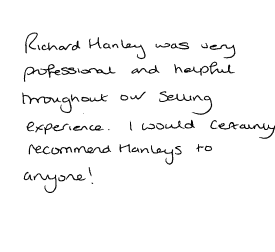 Richard Hanley was very
professional and helpful
throughout our selling
experience. I would certainly
recommend Hanleys to
anyone!